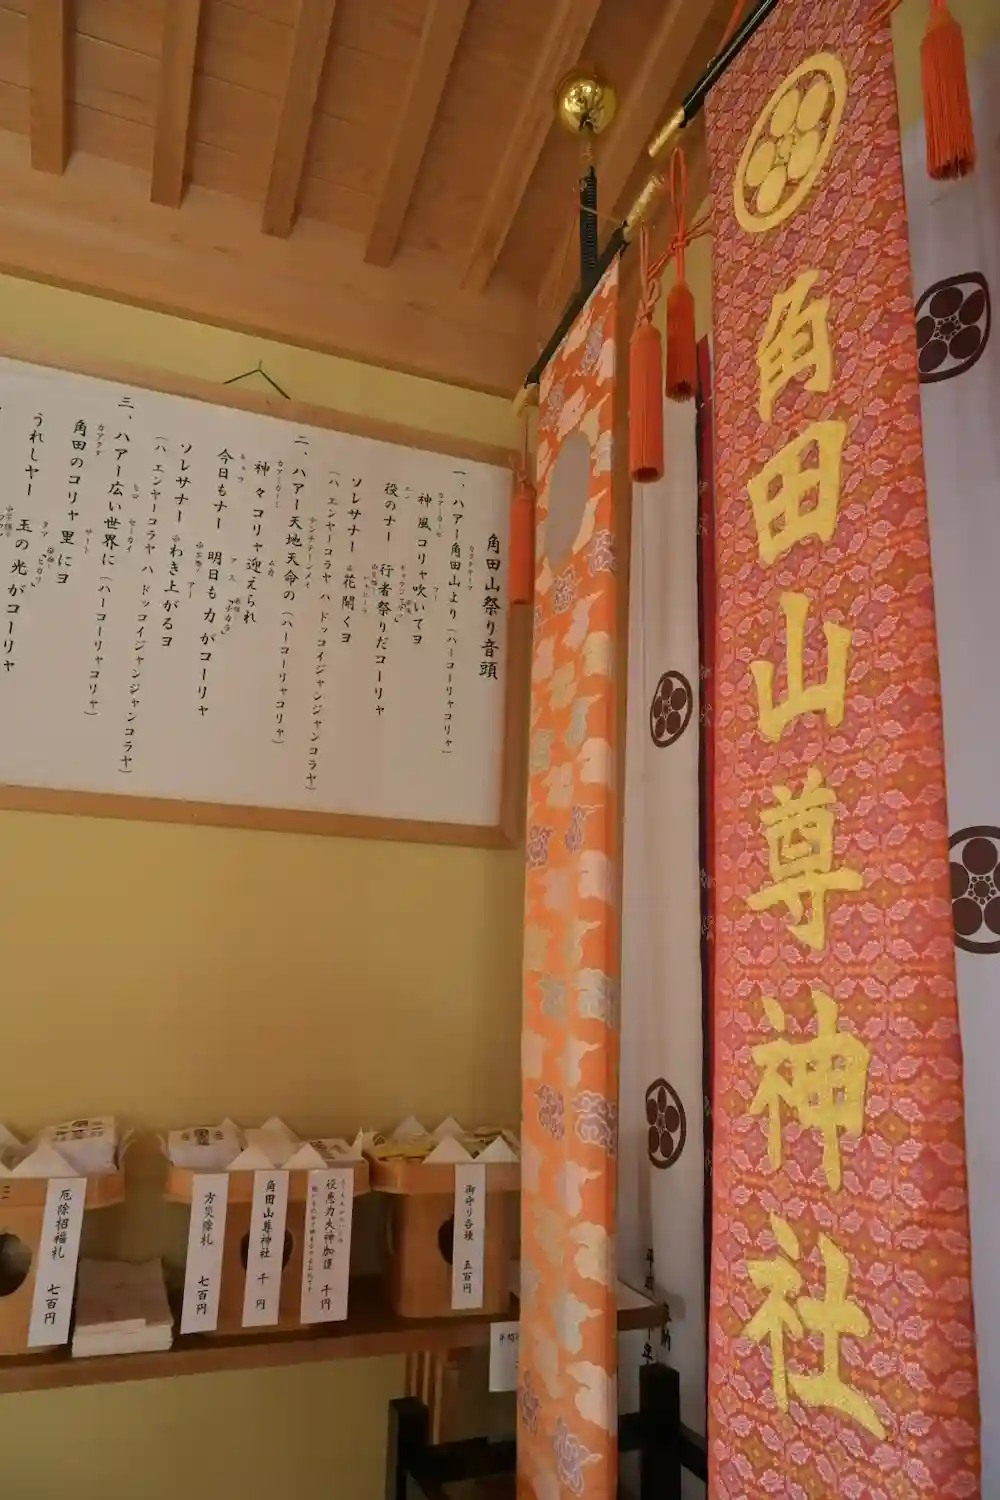 角田山尊神社
角田山祭り音頭
一、ハアー角田山より（ハーコーリャコリャ）
神風コリャ吹いてヨ
役のナー 行者祭りだコーリャ
ソレサナー 花開くヨ
（ハ エンヤーコラヤ ハ ドッコイジャンジャンコラヤ）
二、ハアー天地天命の（ハーコーリャコリャ）
神々コリャ迎えられ
今日もナー 明日も力がコーリャ
ソレサナー わき上がるヨ
（ハ エンヤーコラヤ ハ ドッコイジャンジャンコラヤ）
三、ハアー広い世界に（ハーコーリャコリャ）
角田のコリャ 里にヨ
うれしヤー 玉の光がコーリャ
御守り各種 五百円
役悪力夫神加護 千円
角田山尊神社 千円
方災除札 七百円
厄除招福札 七百円